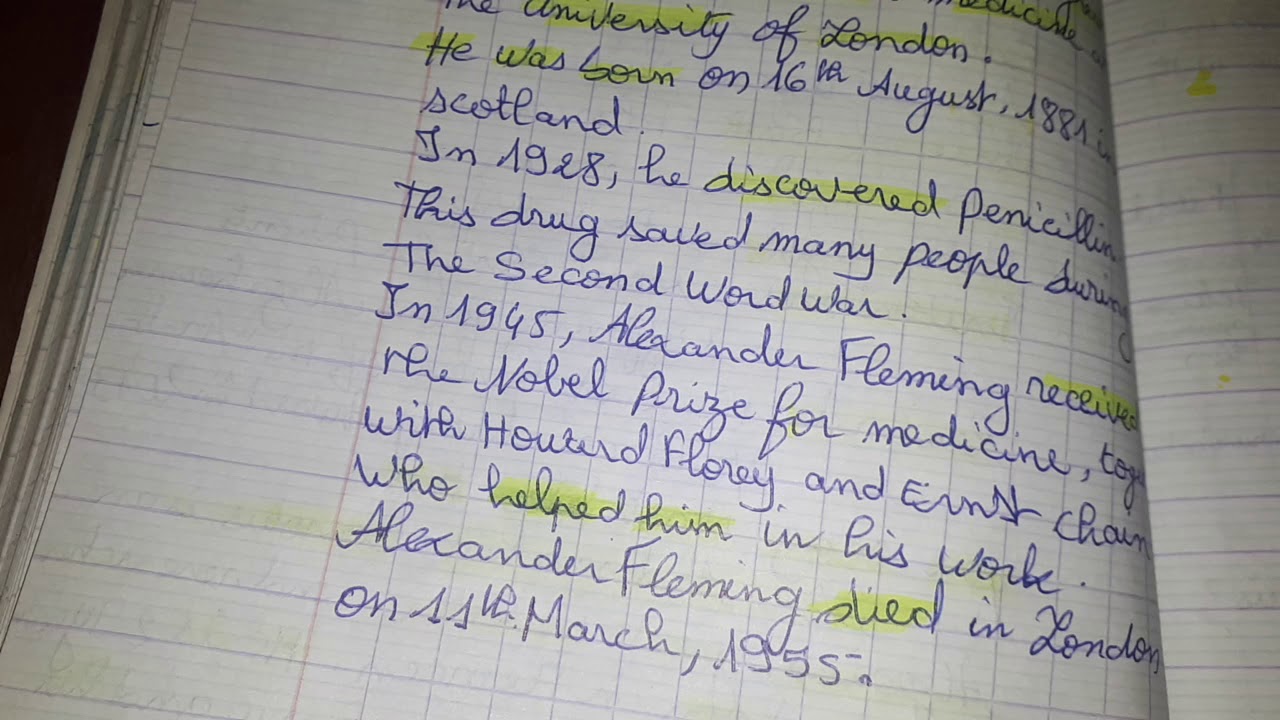 the University of London. medicine
He was born on 16th August, 1881 in
scotland.
In 1928, he discovered Penicillin
This drug saved many people during
The Second Word War.
In 1945, Alexander Fleming received
the Nobel Prize for medicine, toge
with Howard Florey and Ernst Chain
who helped him in his work.
Alexander Fleming died in London
on 11th March, 1955.